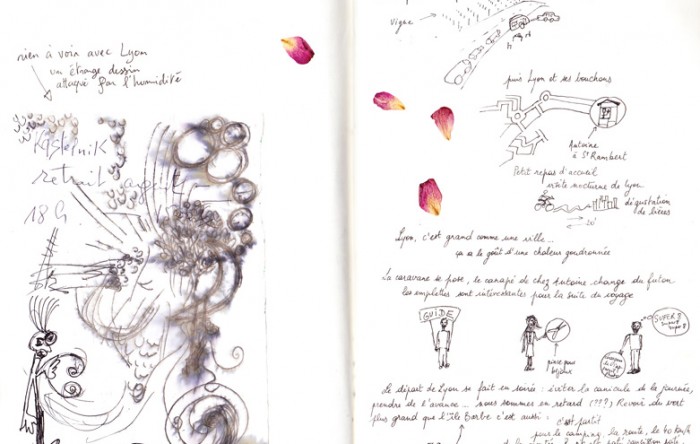 rien à voir avec Lyon
un étrange dessin
attaqué par l'humidité
retrait argent
18 h
vigne
puis Lyon et ses bouchons
Antoine
à St Rambert
Petit repas d'accueil
visite nocturne de Lyon
dégustation
de bières
20'
Lyon, c'est grand comme une ville...
ça a le goût d'une chaleur goudronnée
La caravane se pose, le canapé de chez Antoine change du futon
les emplettes sont intéressantes pour la suite du voyage
GUIDE
pince pour
bijoux
SUPER !!
Le départ de Lyon se fait en soirée : éviter la canicule de la journée,
prendre de l'avance... nous sommes en retard (???) Revoir du vert
plus grand que l'Île Barbe c'est aussi :
c'est partit
pour le camping, la route, le 40 km/h